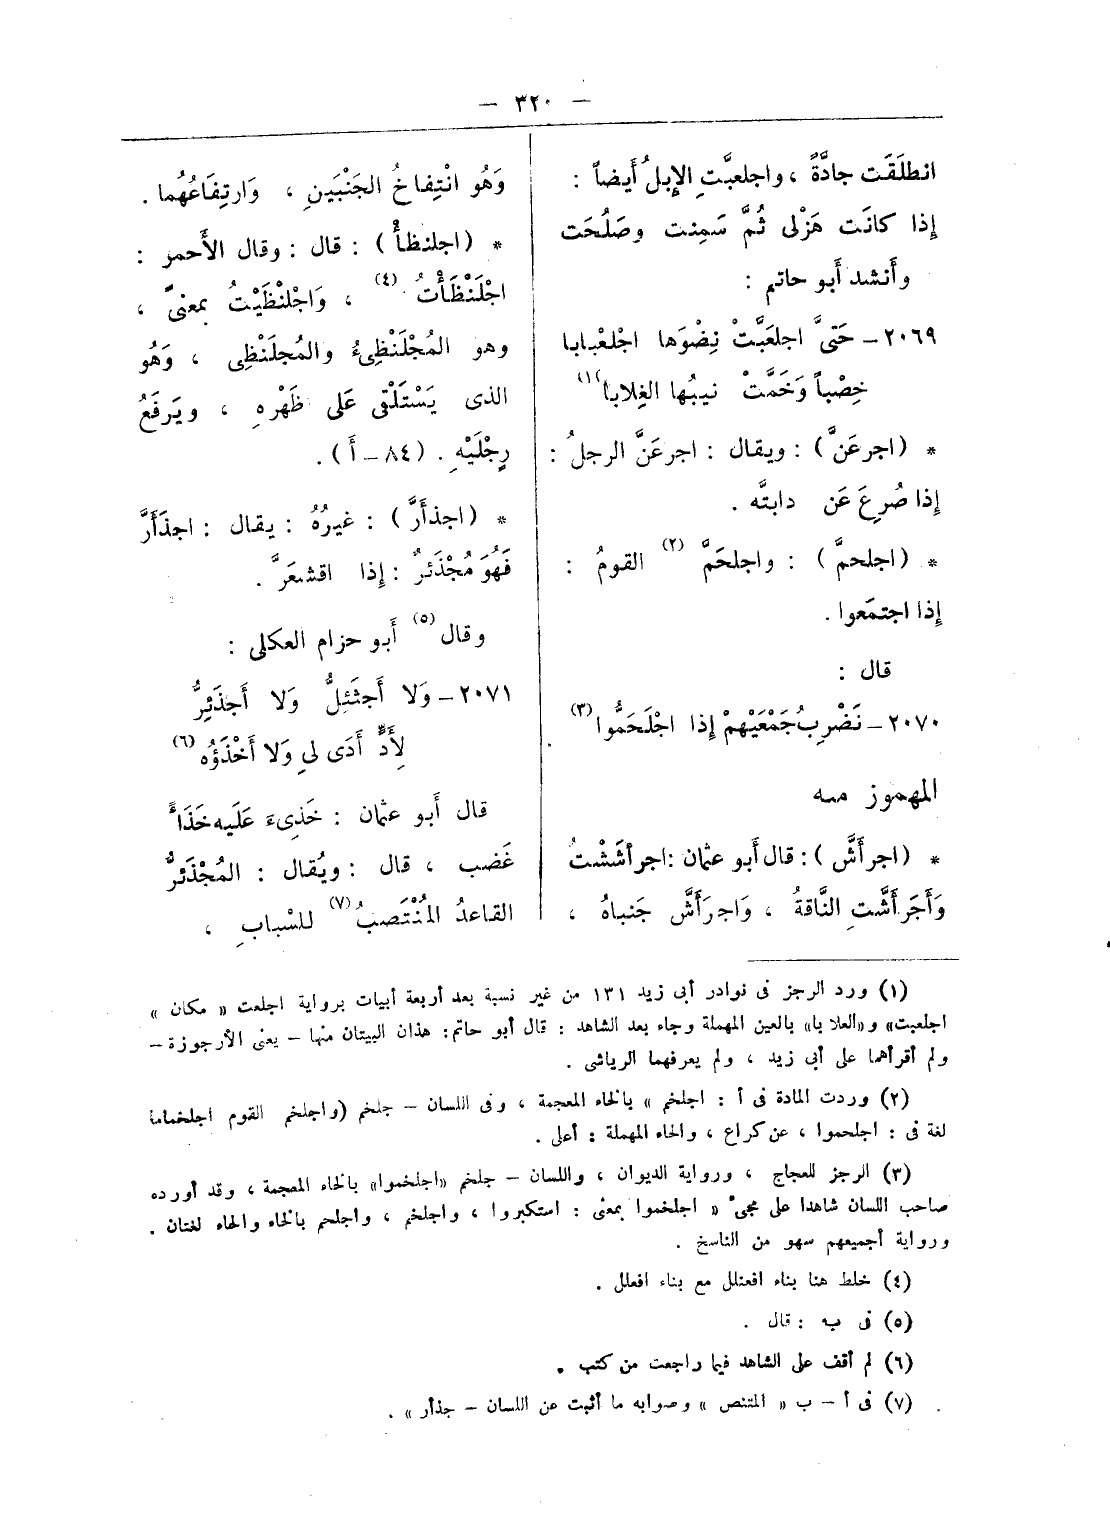 — ٣٢٠ —
انطلَقَت جادَّةً ، واجلعبَّتِ الإبلُ أيضاً :
إذا كانَت هَزْلى ثُمَّ سَمِنت وصَلُحَت
وأَنشد أَبو حاتم :
٢٠٦٩ – حَتىَّ اجلعَبَّتْ نِضْوَها اجْلعْبابا
خِصْباً وَخَمَّتْ نيبُها الغِلابا (١)
* (اجرعَنَّ) : ويقال : اجرعَنَّ الرجلُ :
إذا صُرِعَ عَن دابتَّه .
* (اجلحمَّ) : واجلحَمَّ (٢) القومُ :
إذا اجتمَعوا .
قال :
٢٠٧٠ – نَضْرِبُ جَمْعَيْهِمْ إذا اجْلَحَمُّوا (٣)
المهموز منه
* (اجرأَشَّ) : قال أَبو عثمان : اجرأشَشْتُ
وَأَجَرأَشَّتِ النَّاقةُ ، وَاجرَأَشَّ جَنباهُ ،
وَهُو انْتِفاخُ الجَنْبَينِ ، وَارتِفَاعُهُما .
* (اجلنظأْ) : قال : وقال الأَحمر :
اجْلَنْظَأْتُ (٤) ، وَاجْلنْظَيْتُ بمعنىً ،
وهو المُجْلَنظِىءُ والمُجلَنظِى ، وَهُو
الذى يَسْتَلْقى عَلى ظَهْرِهِ ، ويَرفَعُ
رِجْلَيْهِ . (٨٤ – أَ) .
* (اجذأَرَّ) : غيرُهُ : يقال : اجذَأَرَّ
فَهُوَ مُجْذَئرٌ : إذا اقشعَرَّ .
وقال (٥) أَبو حزام العكلى :
٢٠٧١ – وَلا أَجثَئِلُّ وَلا أَجذَئِرُّ
لِأَدٍّ أَدَى لىِ وَلا أَخْذَؤُه (٦)
قال أَبو عثمان : خَذِىءَ عَلَيه خَذَأً
غَضب ، قال : ويُقال : المُجْذَئرُّ
القاعدُ المُنْتَصبُ (٧) للسْبابِ ،
(١) ورد الرجز فى نوادر أبى زيد ١٣١ من غير نسبة بعد أربعة أبيات برواية اجلعت « مكان »
اجلعبت» و«العلابا» بالعين المهملة وجاء بعد الشاهد : قال أبو حاتم : هذان البيتان منها – يعنى الأرجوزة –
ولم أقرأهما على أبى زيد ، ولم يعرفهما الرياشى .
(٢) وردت المادة فى أ : اجلخم » بالخاء المعجمة ، وفى اللسان – جلخم (واجلخم القوم اجلخماما
لغة فى : اجلحموا ، عن كراع ، والحاء المهملة : أعلى .
(٣) الرجز للعجاج ، ورواية الديوان ، واللسان – جلخم «اجلخموا» بالخاء المعجمة ، وقد أورده
صاحب اللسان شاهدا على مجىء « اجلخموا بمعنى : استكبروا ، واجلخم ، واجلحم بالخاء والحاء لغتان .
ورواية أجميعهم سهو من الناسخ .
(٤) خلط هنا بناء افعنلل مع بناء افعلل .
(٥) فى ب : قال .
(٦) لم أقف على الشاهد فيما راجعت من كتب .
(٧) فى أ – ب « المتنص » وصوابه ما أثبت عن اللسان – جذأر » .